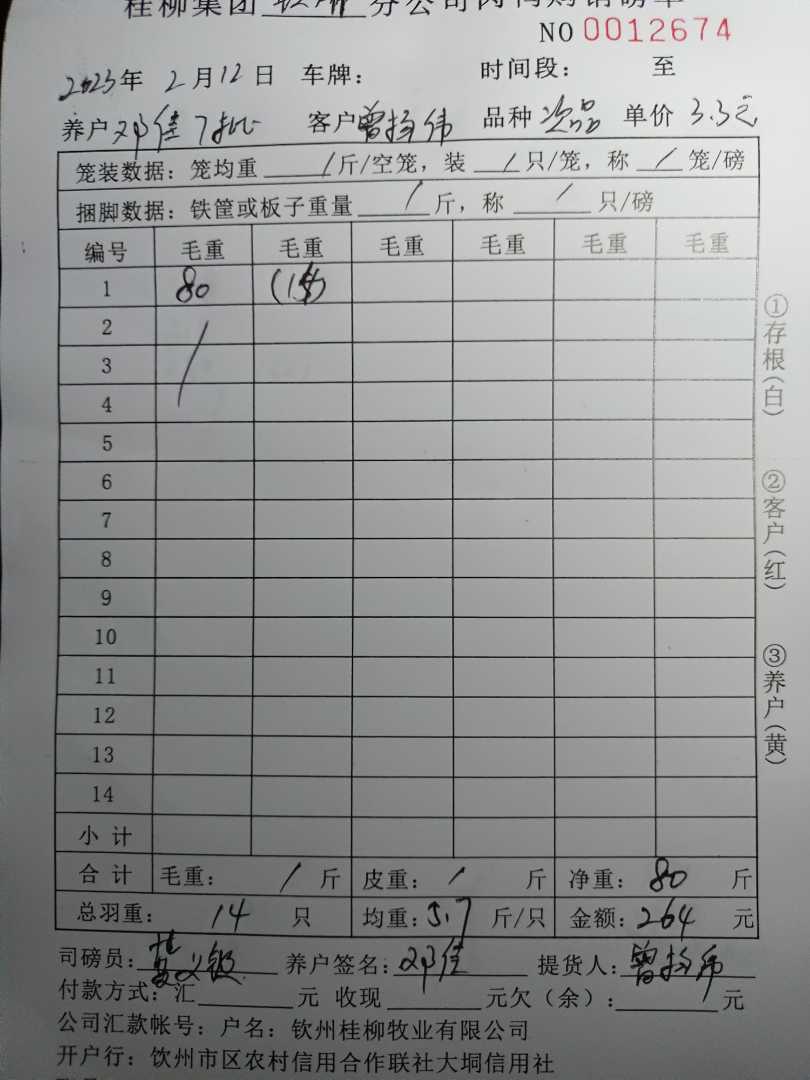 桂柳集团 分公司肉鸭购销磅单
NO 0012674
2023年 2月12日 车牌： 时间段： 至
养户 邓佳 客户 曾 伟 品种 次品 单价 3.3元
笼装数据：笼均重 / 斤/空笼，装 / 只/笼，称 / 笼/磅
捆脚数据：铁筐或板子重量 / 斤，称 / 只/磅
编号 毛重 毛重 毛重 毛重 毛重 毛重
1 80
2
3
4
5
6
7
8
9
10
11
12
13
14
小 计
合 计 毛重： / 斤 皮重： / 斤 净重： 80 斤
总羽重： 14 只 均重： 5.7 斤/只 金额：264 元
司磅员： 养户签名：邓佳 提货人：曾 伟
付款方式：汇 元 收现 元欠（余）： 元
公司汇款帐号：户名：钦州桂柳牧业有限公司
开户行：饮州市区农村信用合作联社大垌信用社
①存根（白）
②客户（红）
③养户（黄）